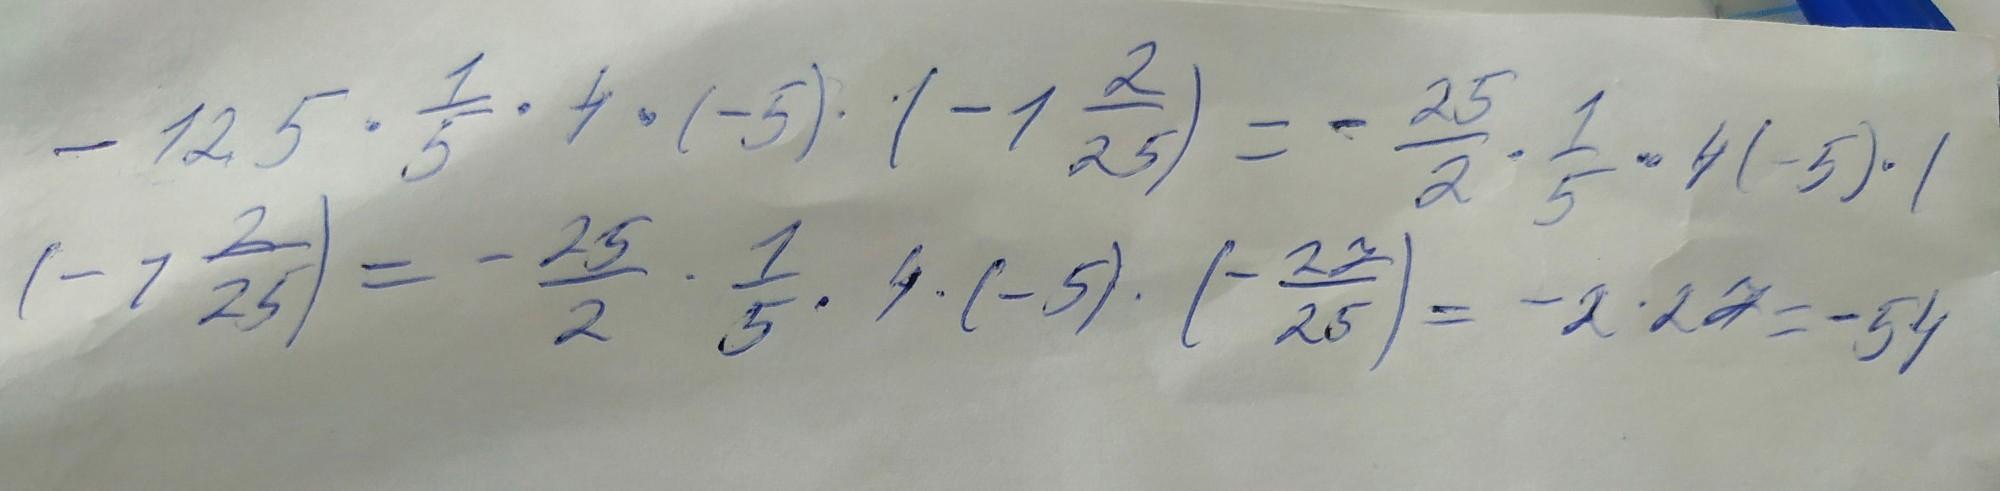 -12,5 · 1/5 · 4 · (-5) · (-1 2/25) = - 25/2 · 1/5 · 4(-5) · (
(-1 2/25) = - 25/2 · 1/5 · 4 · (-5) · (- 27/25) = -2 · 27 = -54